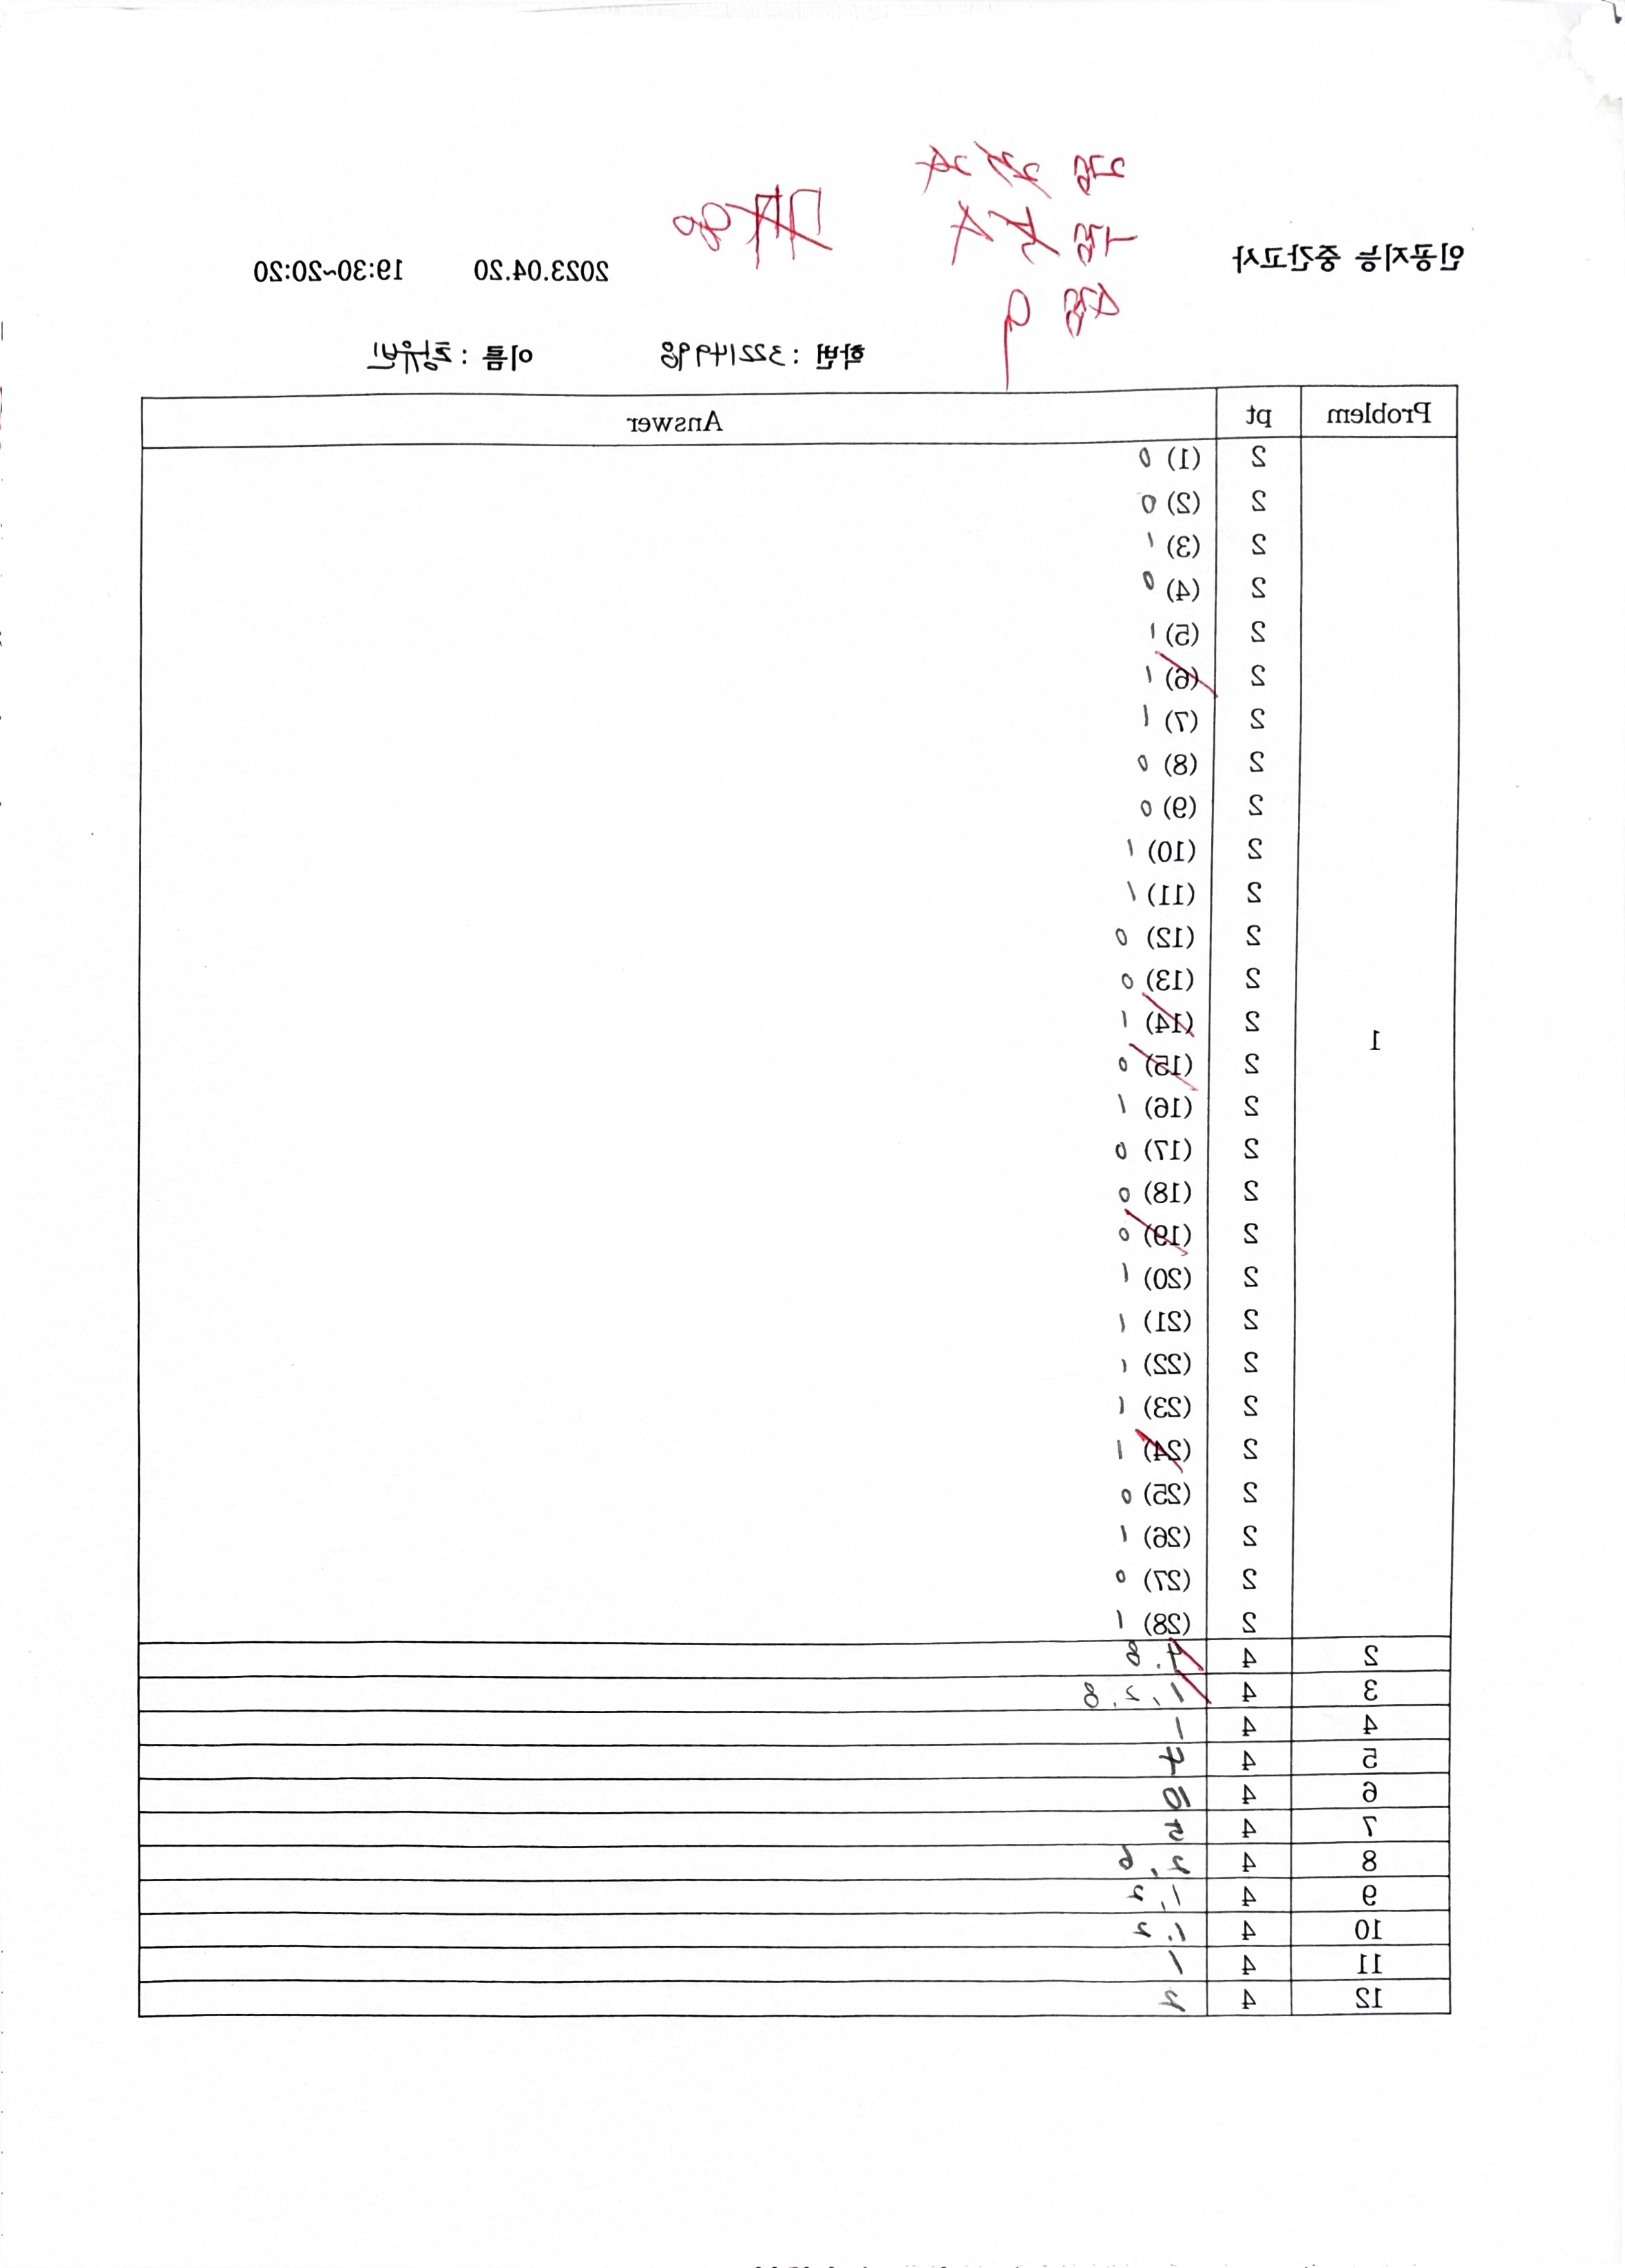 2점 24
1점 4
4점 9
인공지능 중간고사 2023.04.20 19:30~20:20
학번 : 32214998 이름 : 최유빈
Problem pt Answer
1
2 (1) 0
2 (2) 0
2 (3) 1
2 (4) 0
2 (5) 1
2 (6) 1
2 (7) 1
2 (8) 0
2 (9) 0
2 (10) 1
2 (11) 1
2 (12) 0
2 (13) 0
2 (14) 1
2 (15) 0
2 (16) 1
2 (17) 0
2 (18) 0
2 (19) 0
2 (20) 1
2 (21) 1
2 (22) 1
2 (23) 1
2 (24) 1
2 (25) 0
2 (26) 1
2 (27) 0
2 (28) 1
2 4 7. 8
3 4 1, 2, 8
4 4 1
5 4 7
6 4 10
7 4 5
8 4 2, 6
9 4 1, 2
10 4 1, 2
11 4 1
12 4 2